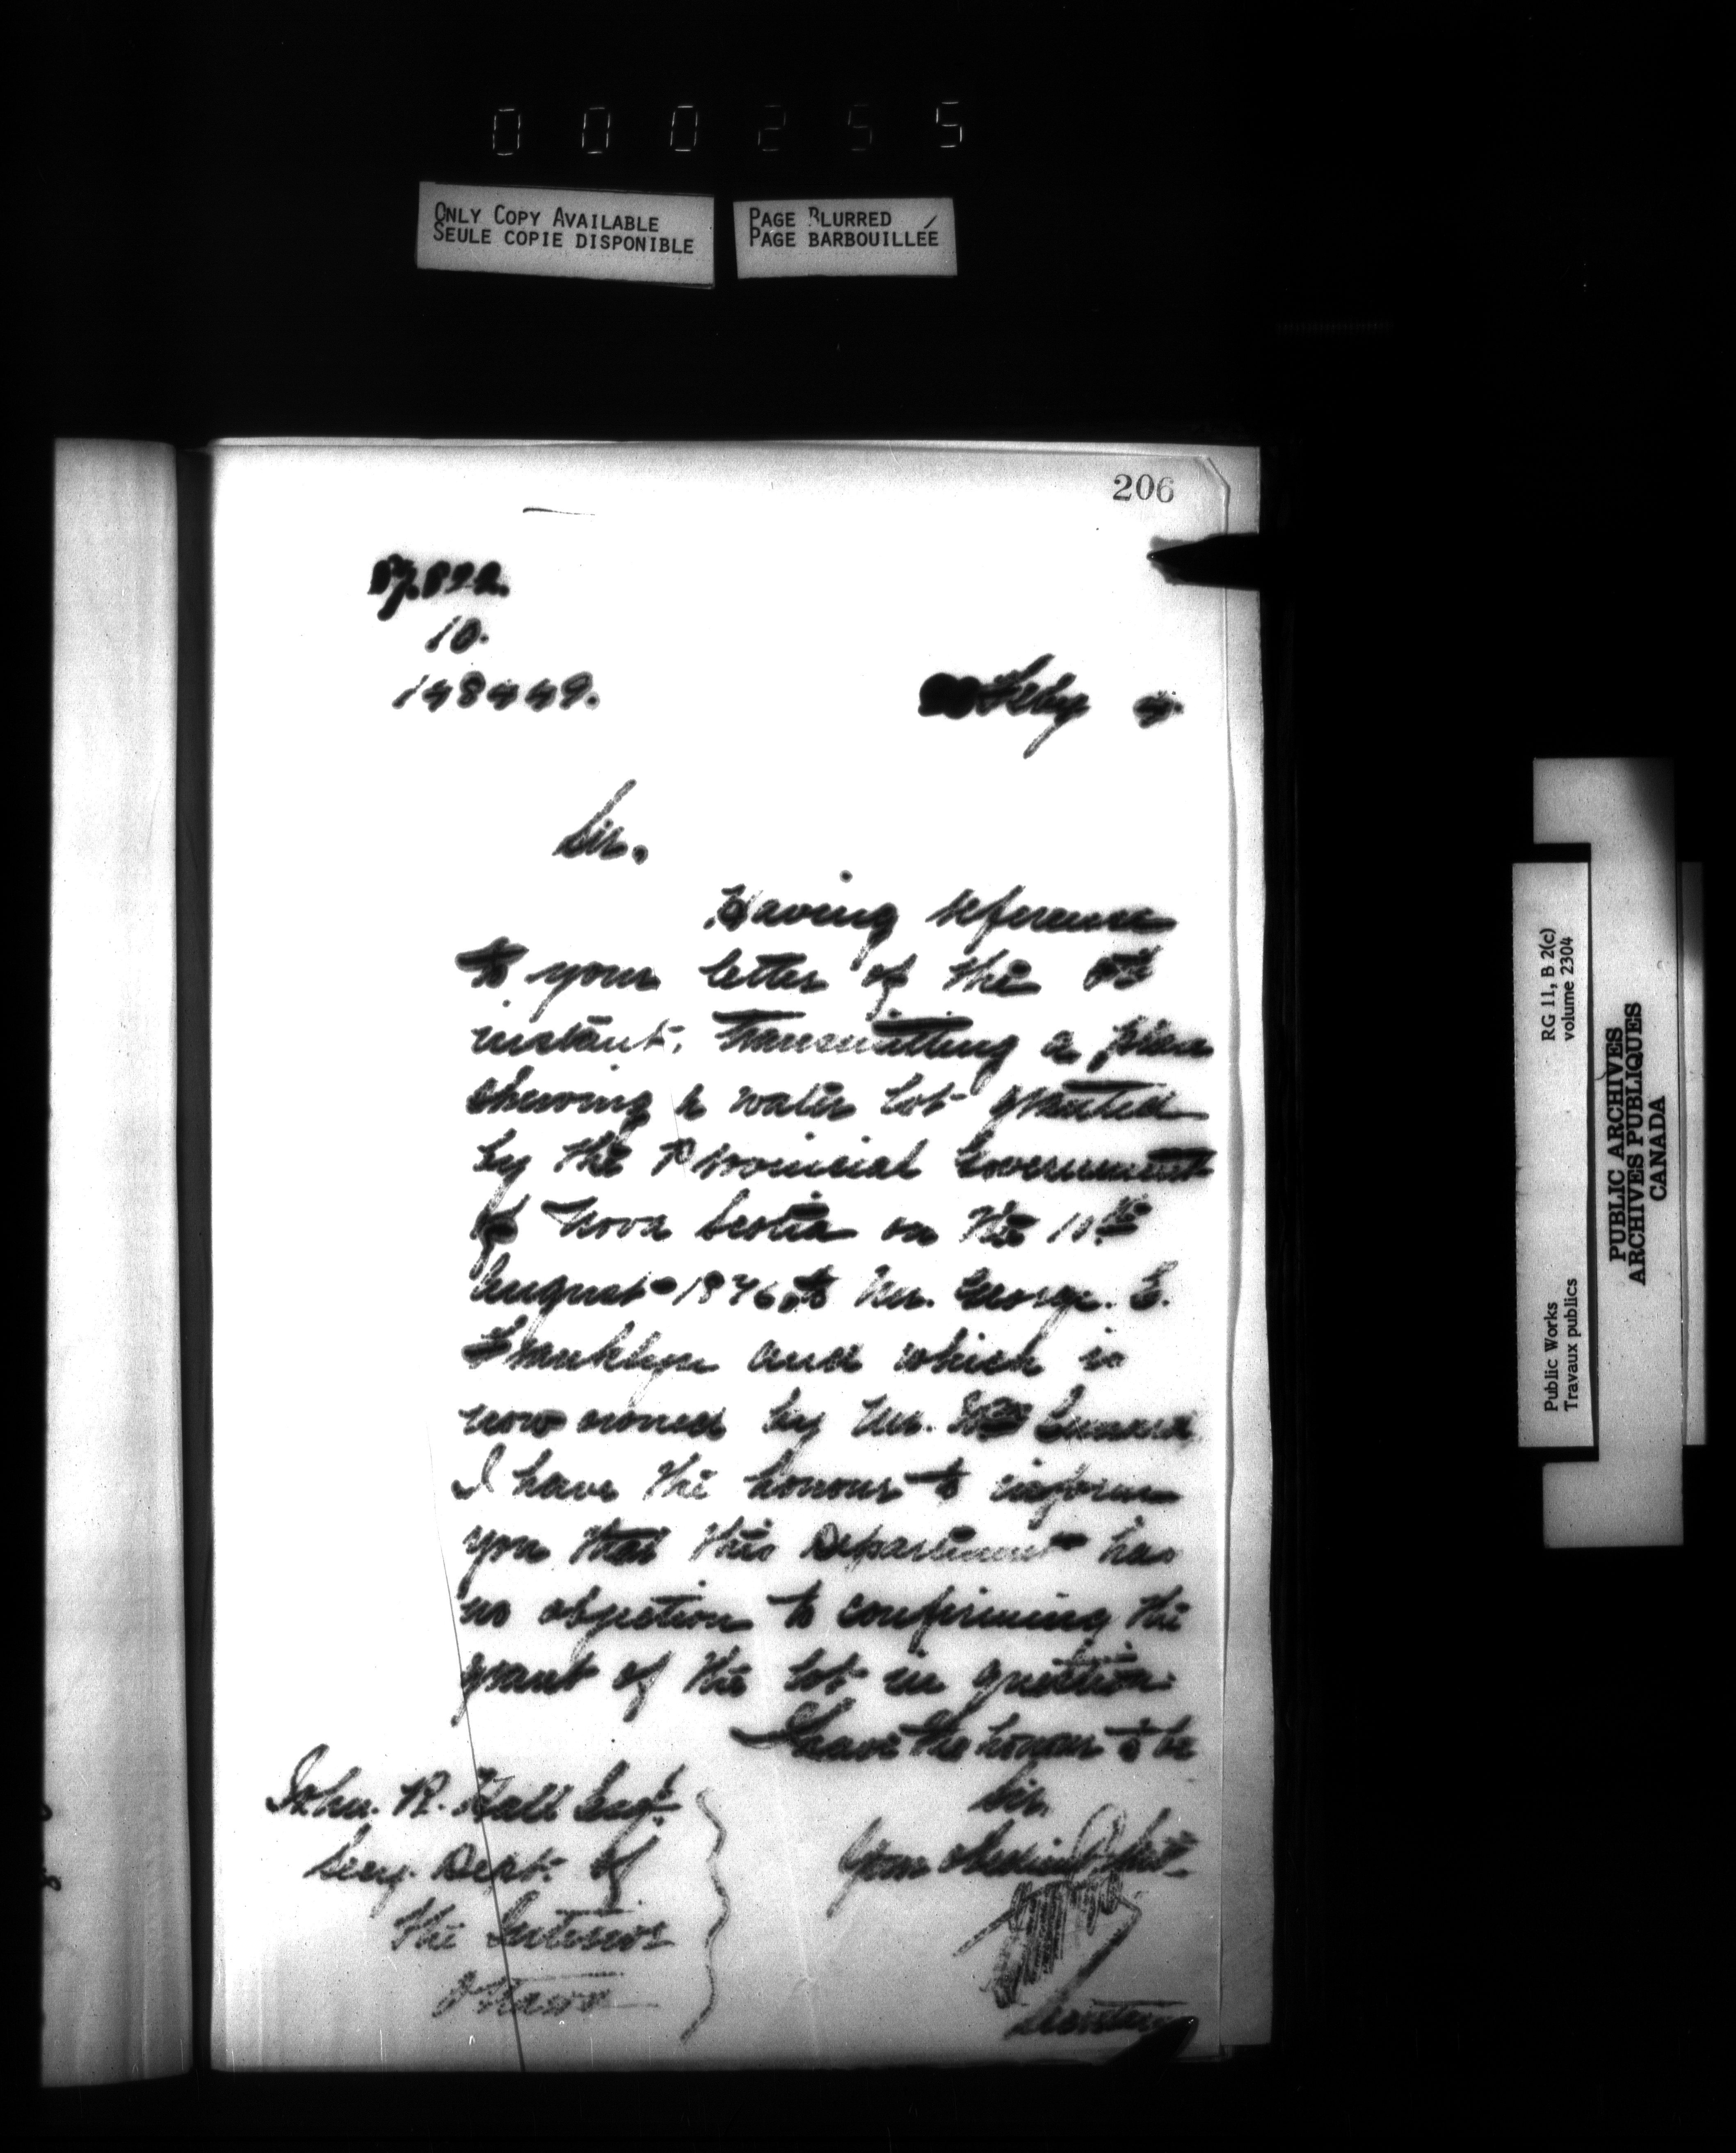 000255
ONLY COPY AVAILABLE
SEULE COPIE DISPONIBLE
PAGE BLURRED
PAGE BARBOUILLÉE
206
10.
148449.
Feby
Sir.
Having reference
to your letter of the
instant, transmitting a plan
shewing a water lot granted
by the Provincial Government
of Nova Scotia on the
August to Mr. George. E.
Francklyn and which is
now owned by Mr. Wm Cunard
I have the honour to inform
you that this Department has
no objection to confirming the
grant of the lot in question.
I have the honour to be
Sir.
Your obedient Servt
Secretary
John. R. Hall Esqr.
Secy. Dept. of
the Interior
Ottawa
RG 11, B 2(c)
volume 2304
Public Works
Travaux publics
PUBLIC ARCHIVES
ARCHIVES PUBLIQUES
CANADA